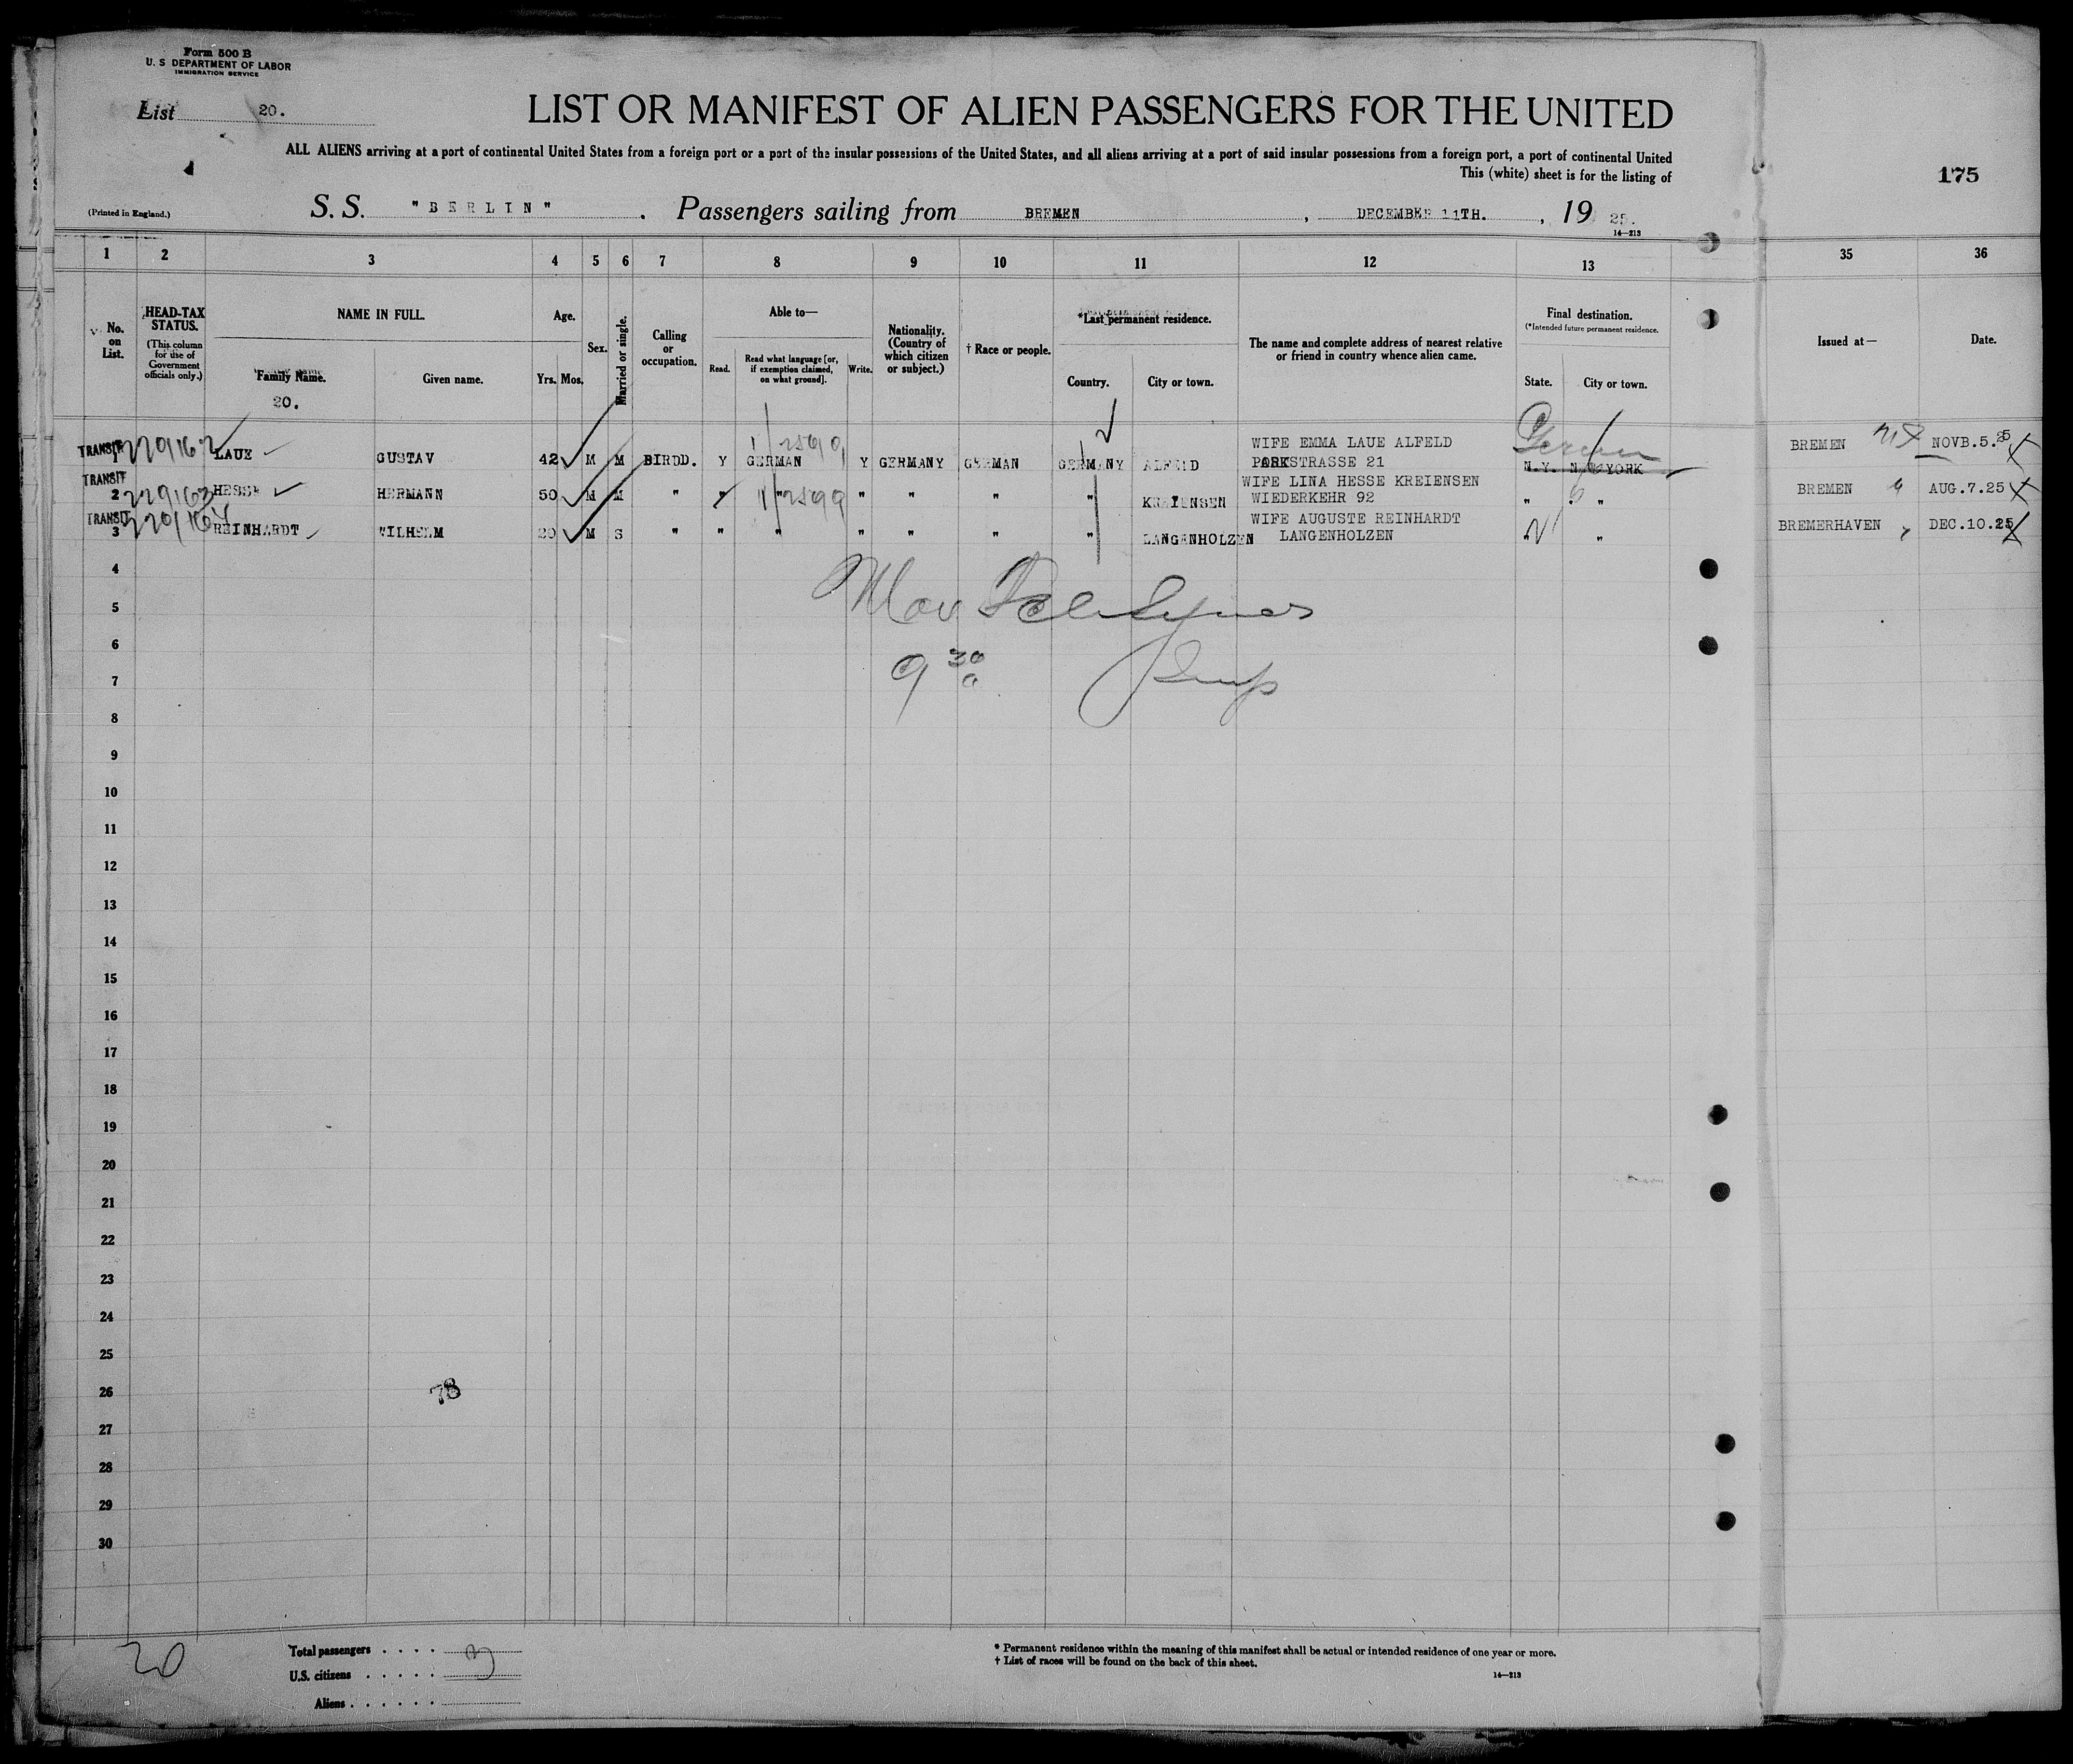 Form 500 B
U. S DEPARTMENT OF LABOR
IMMIGRATION SERVICE
List 20.
LIST OR MANIFEST OF ALIEN PASSENGERS FOR THE UNITED
ALL ALIENS arriving at a port of continental United States from a foreign port or a port of the insular possessions of the United States, and all aliens arriving at a port of said insular possessions from a foreign port, a port of continental United
This (white) sheet is for the listing of
175
(Printed in England.)
S. S. "BERLIN" . Passengers sailing from BREMEN , DECEMBER 11TH. , 19 25.
14—213
1 2 3 4 5 6 7 8 9 10 11 12 13 35 36
No. on List.
HEAD-TAX STATUS.
(This column for use of Government officials only.)
NAME IN FULL.
Family Name.
Given name.
20.
Age.
Yrs. Mos.
Sex.
Married or single.
Calling or occupation.
Able to—
Read.
Read what language [or, if exemption claimed, on what ground].
Write.
Nationality. (Country of which citizen or subject.)
† Race or people.
*Last permanent residence.
Country.
City or town.
The name and complete address of nearest relative or friend in country whence alien came.
Final destination.
(*Intended future permanent residence.
State.
City or town.
Issued at—
Date.
TRANSIT 1 229162 LAUE GUSTAV 42 M M BIRDD. Y GERMAN Y GERMANY GERMAN GERMANY ALFELD WIFE EMMA LAUE ALFELD
PARKSTRASSE 21 N.Y. NEW YORK BREMEN NOVB.5.25
TRANSIT 2 229163 HESSE HERMANN 50 M M " " " " " " " KREIENSEN WIFE LINA HESSE KREIENSEN
WIEDERKEHR 92 " " BREMEN AUG.7.25
TRANSIT 3 229164 REINHARDT WILHELM 20 M S " " " " " " " LANGENHOLZEN WIFE AUGUSTE REINHARDT
LANGENHOLZEN " " BREMERHAVEN DEC.10.25
4
5
6
9 30 a
7
8
9
10
11
12
13
14
15
16
17
18
19
20
21
22
23
24
25
26
78
27
28
29
30
20
Total passengers . . . . 3
U.S. citizens . . . . .
Aliens . . . . . .
* Permanent residence within the meaning of this manifest shall be actual or intended residence of one year or more.
† List of races will be found on the back of this sheet.
14—213